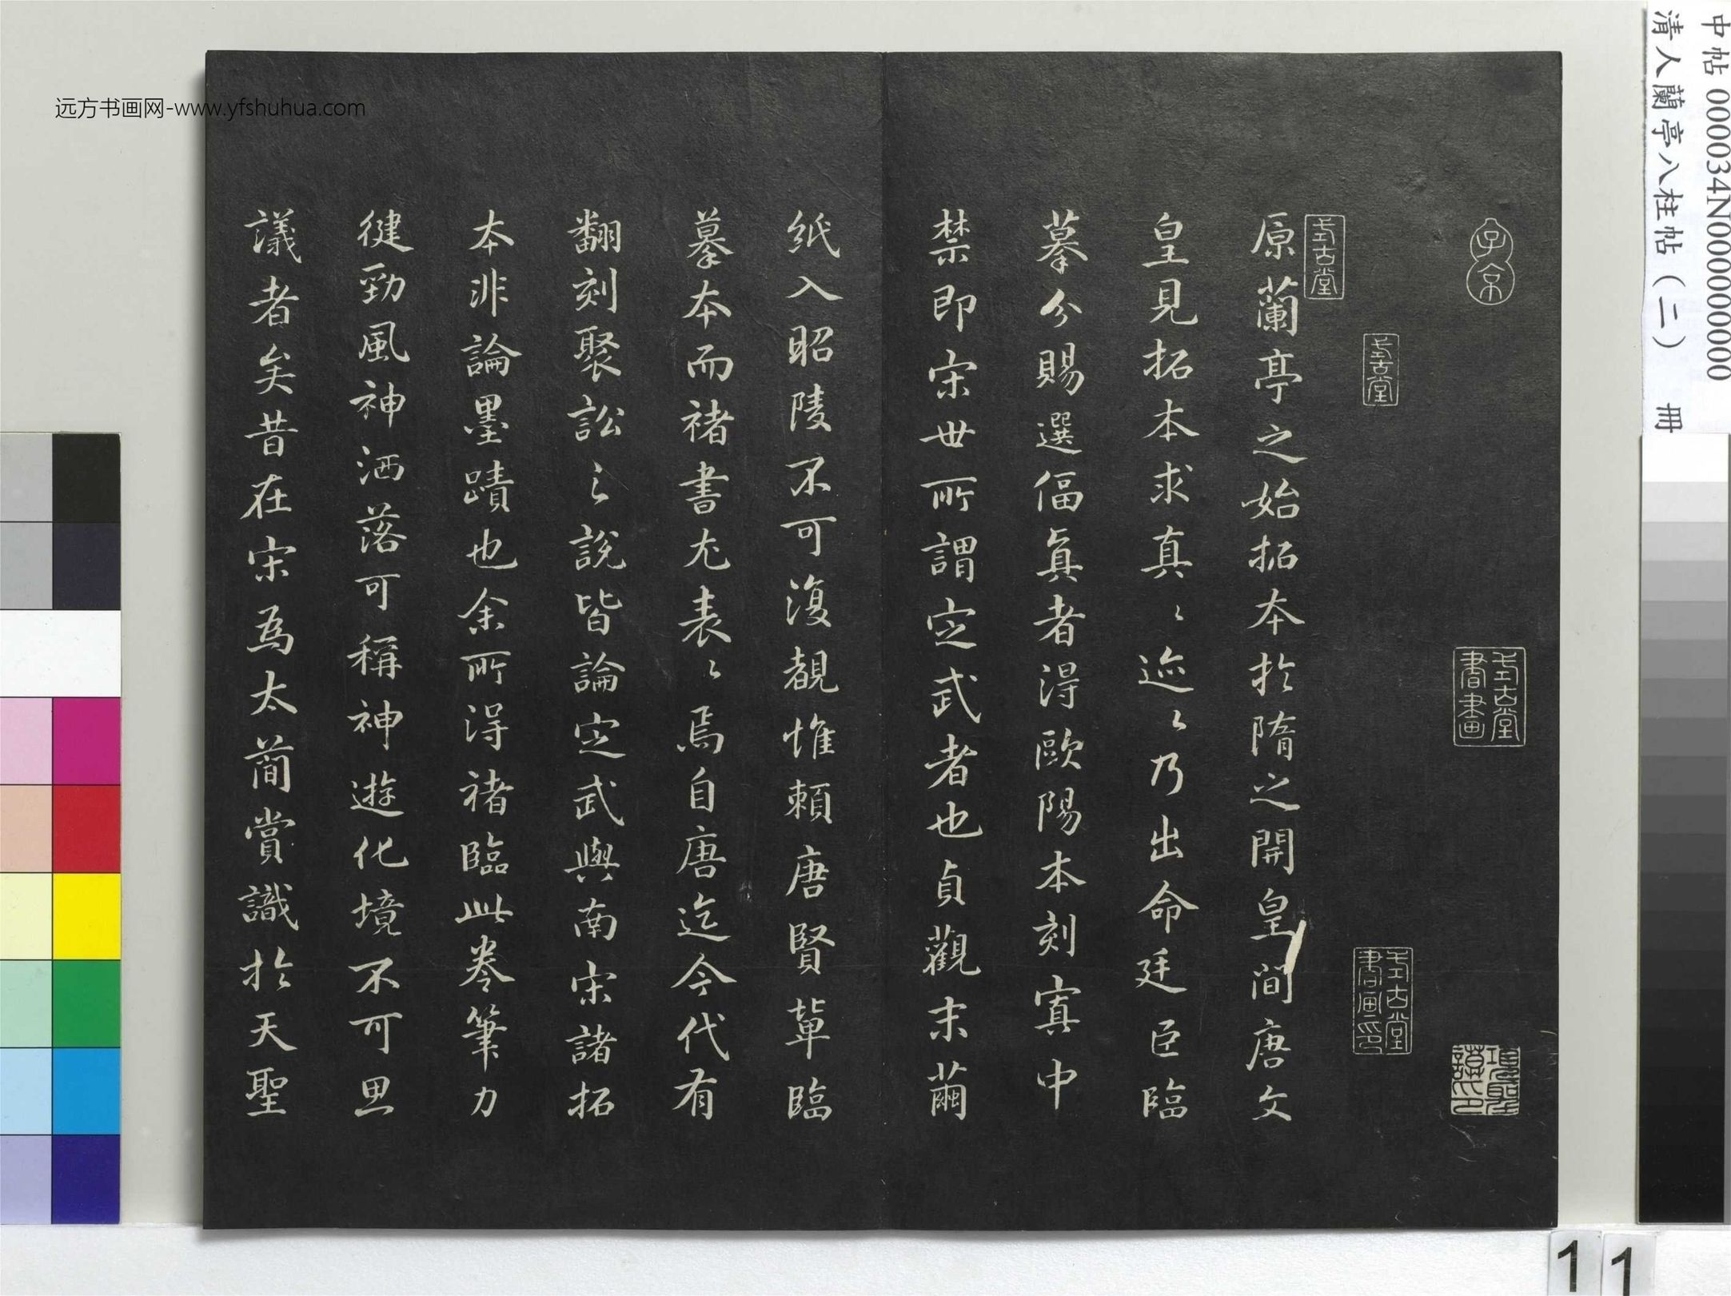 中帖 000034N000000000
清人蘭亭八柱帖（二） 冊
远方书画网-www.yfshuhua.com
子京
原蘭亭之始拓本於隋之開皇間唐文
皇見拓本求真〻迹〻乃出命廷臣臨
摹分賜選偪真者得歐陽本刻寘中
禁即宋世所謂定武者也貞觀末繭
紙入昭陵不可復覩惟賴唐賢輩臨
摹本而褚書尤表〻焉自唐迄今代有
翻刻聚訟之說皆論定武與南宋諸拓
本非論墨蹟也余所得褚臨此卷筆力
健勁風神洒落可稱神遊化境不可思
議者矣昔在宋為太簡賞識於天聖
11